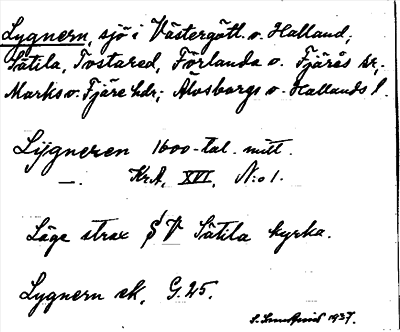 Lygnern, sjö i Västergötl. o. Halland;
Sätila, Tostared, Förlanda o. Fjärås sr;
Marks o. Fjäre hdr; Älvsborgs o. Hallands l.
Lijgneren 1600-tal. mitt.
—. KrA, XVI, N:o 1.
Läge strax S V Sätila kyrka.
Lygnern ek. G. 25.
1937.